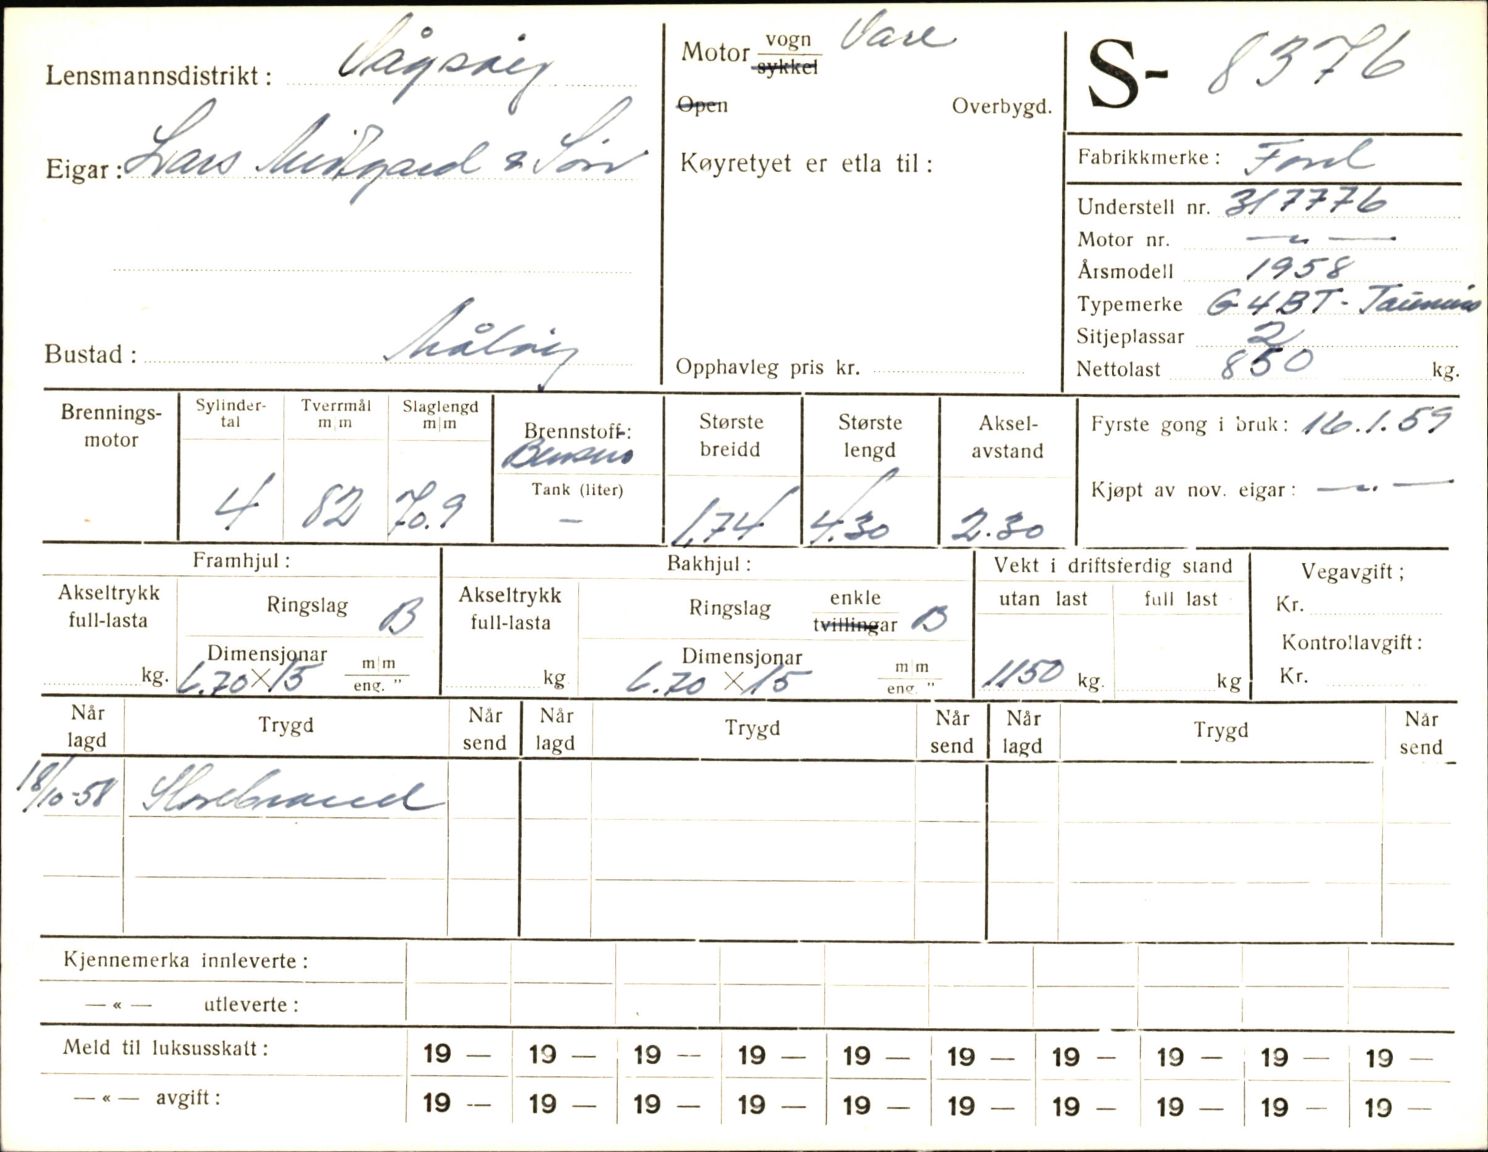 Lensmannsdistrikt: Vågsøig
Eigar: Lars Midtgard & Søn
Bustad: Måløig
Motor vogn Vare
sykkel
Open Overbygd.
Køyretyet er etla til:
Opphavleg pris kr.
S- 8376
Fabrikkmerke: Ford
Understell nr. 317776
Motor nr. — „ —
Årsmodell 1958
Typemerke G4BT - Taunus
Sitjeplassar 2
Nettolast 850 kg.
Brennings-
motor
Sylinder-
tal
4
Tverrmål
m|m
82
Slaglengd
m|m
70.9
Brennstoff:
Bensin
Tank (liter)
—
Største
breidd
1,74
Største
lengd
4.30
Aksel-
avstand
2.30
Fyrste gong i bruk: 16.1.59
Kjøpt av nov. eigar: — „ —
Framhjul:
Akseltrykk
full-lasta
kg.
Ringslag B
Dimensjonar
6.70 × 15 m|m
eng. "
Bakhjul:
Akseltrykk
full-lasta
kg
Ringslag enkle
tvillingar B
Dimensjonar
6.70 × 15 m|m
eng. "
Vekt i driftsferdig stand
utan last full last
1150 kg. kg
Vegavgift;
Kr.
Kontrollavgift:
Kr.
Når
lagd
Trygd
Når
send
Når
lagd
Trygd
Når
send
Når
lagd
Trygd
Når
send
18/10-58 Storebrand
Kjennemerka innleverte:
— « — utleverte:
Meld til luksusskatt: 19 — 19 — 19 — 19 — 19 — 19 — 19 — 19 — 19 — 19 —
— « — avgift: 19 — 19 — 19 — 19 — 19 — 19 — 19 — 19 — 19 — 19 —